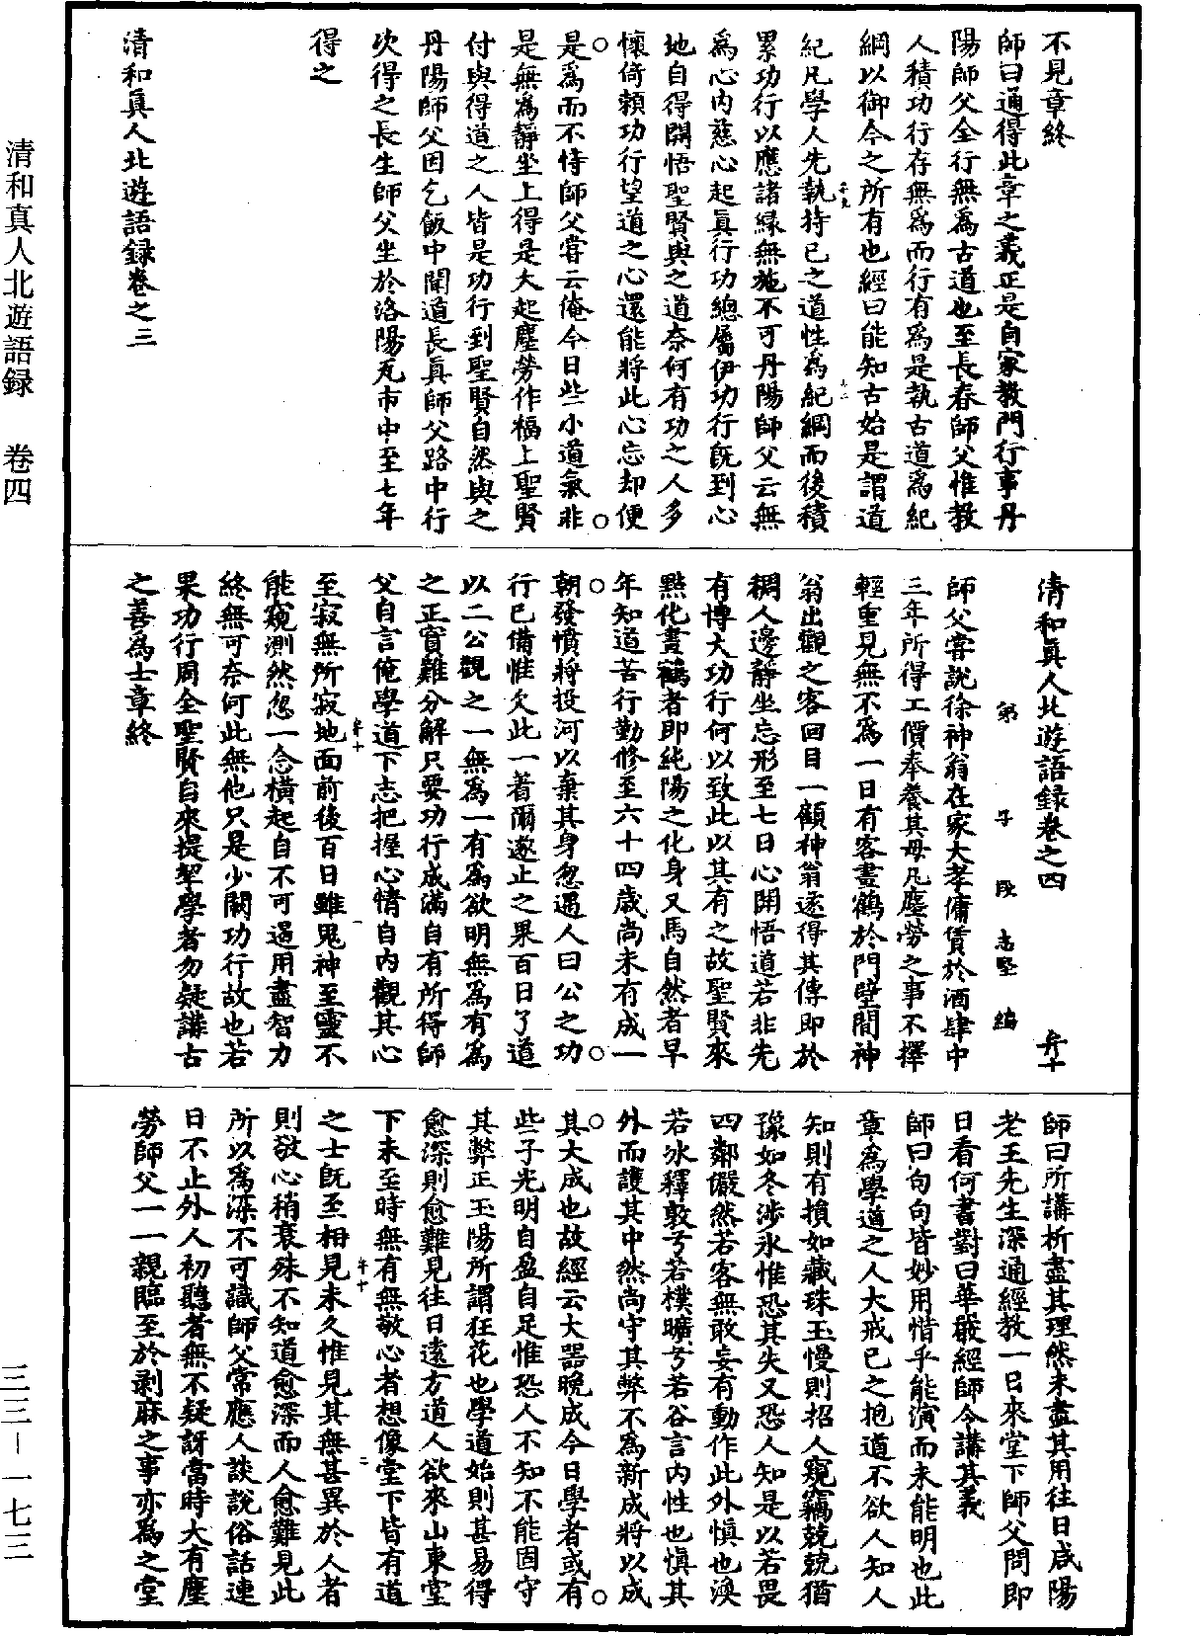 不見章終
師曰通得此章之義正是自家教門行事丹
陽師父全行無為古道也至長春師父惟教
人積功行存無為而行有為是執古道為紀
綱以御今之所有也經曰能知古始是謂道
紀凡學人先執持已之道性為紀綱而後積
累功行以應諸緣無施不可丹陽師父云無
為心內慈心起真行功總屬伊功行既到心
地自得開悟聖賢與之道奈何有功之人多
懷倚賴功行望道之心還能將此心忘却便
是為而不恃師父嘗云俺今日些小道氣非
是無為靜坐上得是大起塵勞作福上聖賢
付與得道之人皆是功行到聖賢自然與之
丹陽師父因乞飯中聞道長真師父路中行
次得之長生師父坐於洛陽瓦市中至七年
得之
清和真人北遊語録卷之三
清和真人北遊語録卷之四 弁十
弟子段志堅編
師父嘗說徐神翁在家大孝傭賃於酒肆中
三年所得工價奉養其母凡塵勞之事不擇
輕重見無不為一日有客畫鶴於門壁間神
翁出觀之客回目一顧神翁遂得其傳即於
稠人邊靜坐忘形至七日心開悟道若非先
有博大功行何以致此以其有之故聖賢來
點化畫鶴者即純陽之化身又馬自然者早
年知道苦行勤修至六十四歲尚未有成一
朝發憤將投河以棄其身忽遇人曰公之功
行已備惟欠此一著爾遂止之果百日了道
以二公觀之一無為一有為欲明無為有為
之正實難分解只要功行成滿自有所得師
父自言俺學道下志把握心情自內觀其心
至寂無所寂地面前後百日雖鬼神至靈不
能窺測然忽一念橫起自不可遏用盡智力
終無可奈何此無他只是少闕功行故也若
果功行周全聖賢自來提挈學者勿疑講古
之善為士章終
師曰所講析盡其理然未盡其用往日咸陽
老王先生深通經教一日來堂下師父問即
日看何書對曰華嚴經師令講其義
師曰句句皆妙用惜乎能演而未能明也此
章為學道之人大戒已之抱道不欲人知人
知則有損如藏珠玉慢則招人窺竊兢兢猶
豫如冬涉氷惟恐其失又恐人知是以若畏
四鄰儼然若客無敢妄有動作此外慎也渙
若氷釋敦兮若樸曠兮若谷言內性也慎其
外而護其中然尚守其弊不為新成將以成
其大成也故經云大器晚成今日學者或有
些子光明自盈自足惟恐人不知不能固守
其弊正玉陽所謂狂花也學道始則甚易得
愈深則愈難見往日遠方道人欲來山東堂
下未至時無有無敬心者想像堂下皆有道
之士既至相見未久惟見其無甚異於人者
則敬心稍衰殊不知道愈深而人愈難見此
所以為深不可識師父常應人談說俗話連
日不止外人初聽者無不疑訝當時大有塵
勞師父一一親臨至於剥麻之事亦為之堂
清和真人北遊語録 卷四
三三－一七三